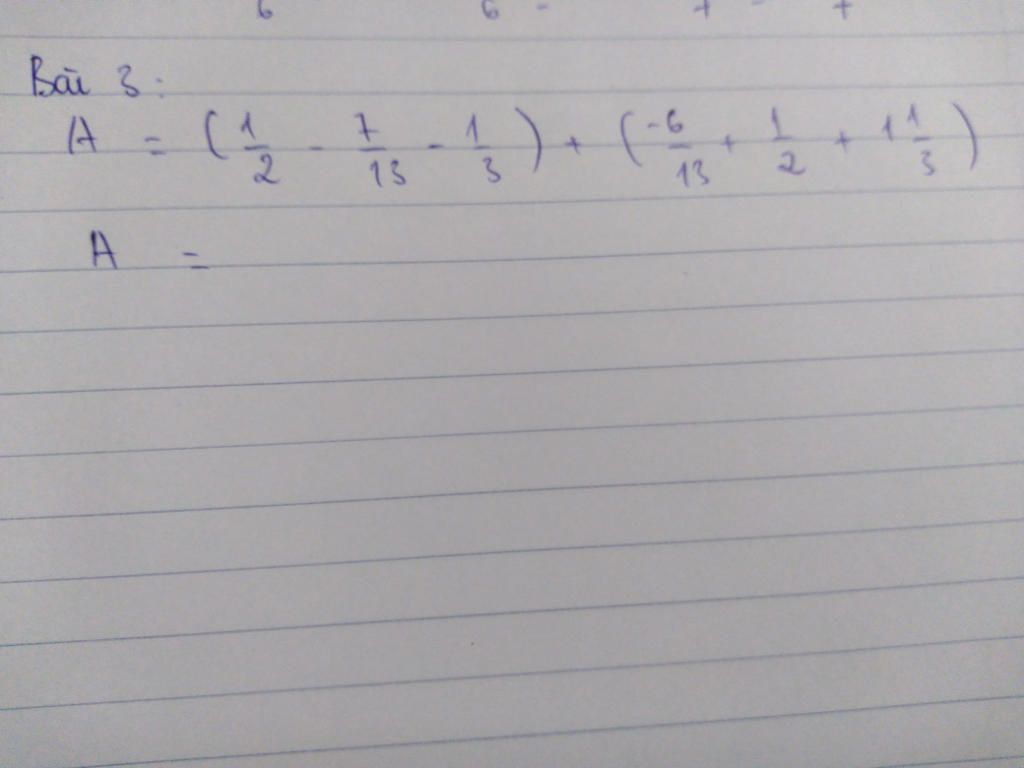 6 6 -
Bài 3:
A = (1/2 - 7/13 - 1/3) + (-6/13 + 1/2 + 1 1/3)
A =